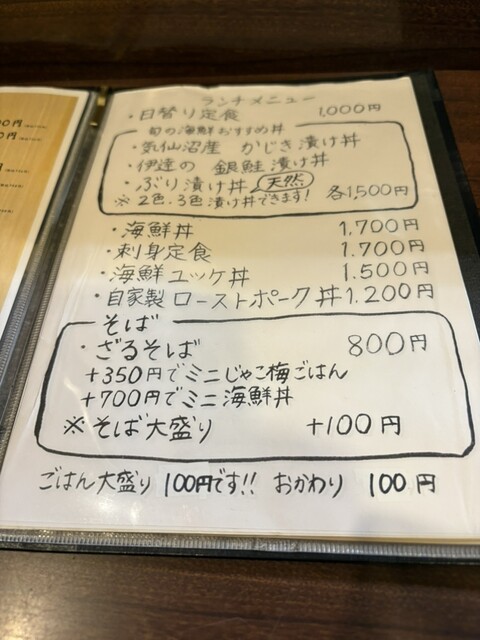 ランチメニュー
・日替り定食 1,000円
旬の海鮮おすすめ丼
・気仙沼産 かじき漬け丼
・伊達の 銀鮭漬け丼
・ぶり漬け丼 天然
※2色、3色漬け丼できます! 各1,500円
・海鮮丼 1,700円
・刺身定食 1.700円
・海鮮ユッケ丼 1.500円
・自家製ローストポーク丼 1.200円
そば
・ざるそば 800円
+350円でミニじゃこ梅ごはん
+700円でミニ海鮮丼
※そば大盛り +100円
ごはん大盛り 100円です!! おかわり 100円